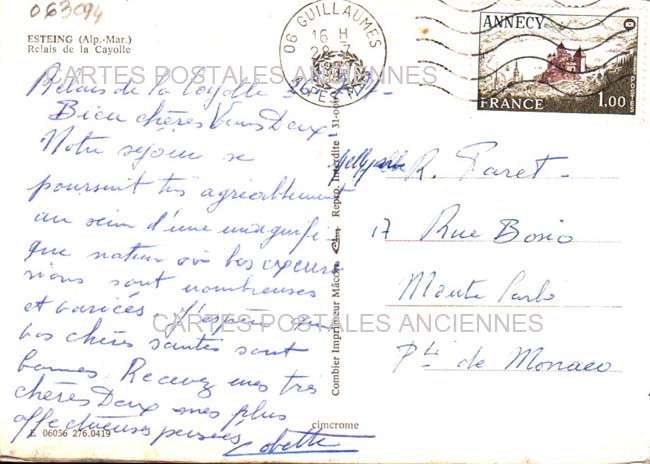 063094
ESTEING (Alp.-Mar.)
Relais de la Cayolle
06 GUILLAUMES
16 H
ALPES
ANNECY
POSTES
FRANCE
1,00
CARTES POSTALES ANCIENNES
Relais de la Cayolle
Bien chères Vous Deux
Notre séjour se
poursuit très agréablement
au sein d'une magnifi
que nature où les excur
sions sont nombreuses
et variées. J'espère que
vos chères santés sont
bonnes. Recevez mes très
chères Deux mes plus
affectueuses pensées
R. Paret
17 Rue Bosio
Monte Carlo
Pté de Monaco
CARTES POSTALES ANCIENNES
Combier Imprimeur Mâcon
Repro. Interdite
cimcrome
E 06056 276.0419